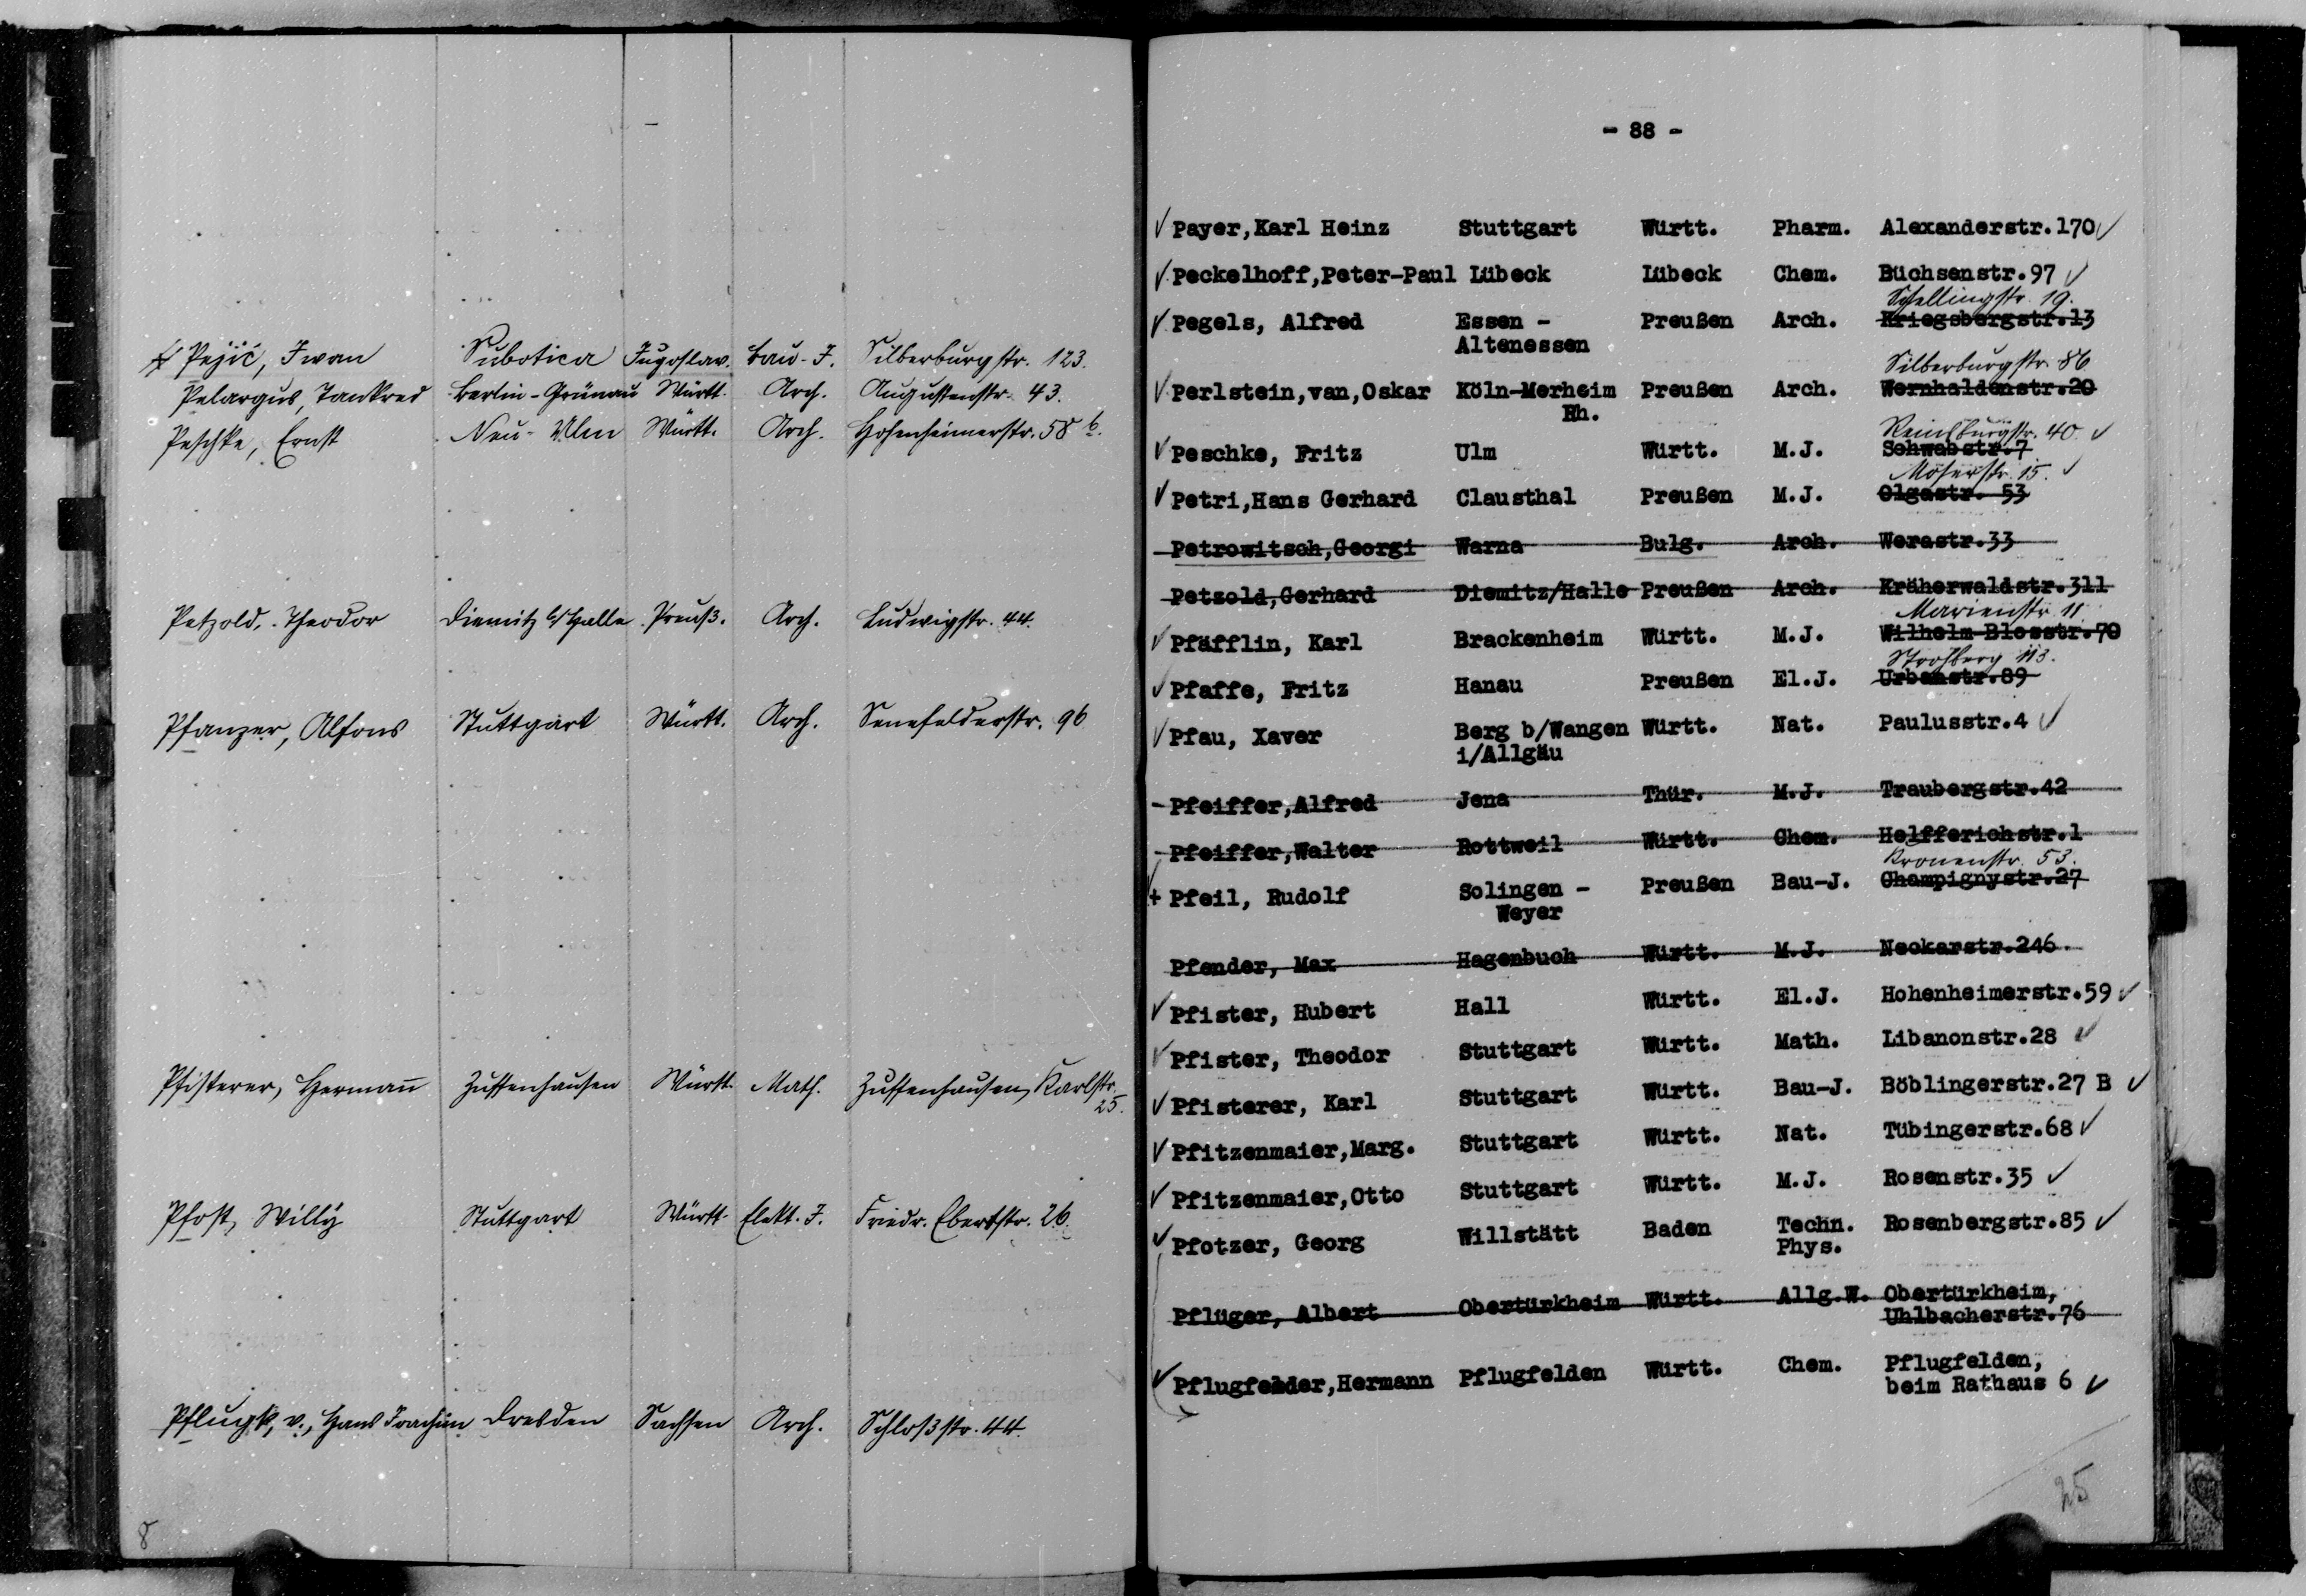 Pejić, Iwan Subotica Jugoslav. Bau-J. Silberburgstr. 123.
Pelargus, Tankred Berlin-Grünau Württ. Arch. Augustenstr. 43.
Peschke, Ernst Neu-Ulm Württ. Arch. Hohenheimerstr. 58 b.
Petzold, Theodor Diemitz b/Halle Preuß. Arch. Ludwigstr. 44.
Pfanzer, Alfons Stuttgart Württ. Arch. Senefelderstr. 96
Pfisterer, Hermann Zuffenhausen Württ. Math. Zuffenhausen, Karlstr.
25.
Pfost, Willy Stuttgart Württ. Elekt. J. Friedr. Ebertstr. 26.
Pflugk, v., Hans Joachim Dresden Sachsen Arch. Schloßstr. 44.
8
- 88 -
Payer,Karl Heinz Stuttgart Württ. Pharm. Alexanderstr.170
Peckelhoff,Peter-Paul Lübeck Lübeck Chem. Büchsenstr.97
Schellingstr. 19.
Pegels, Alfred Essen - Preußen Arch. Kriegsbergstr.13
Altenessen
Silberburgstr. 86
Perlstein,van,Oskar Köln-Merheim Preußen Arch. Wernhaldenstr.20
Rh.
Reinsburgstr. 40.
Peschke, Fritz Ulm Württ. M.J. Schwabstr.7
Möserstr. 15.
Petri,Hans Gerhard Clausthal Preußen M.J. Olgastr. 53
Petrowitsch,Georgi Warna Bulg. Arch. Werastr.33
Petzold,Gerhard Diemitz/Halle Preußen Arch. Kräherwaldstr.311
Marienstr. 11.
Pfäfflin, Karl Brackenheim Württ. M.J. Wilhelm-Blosstr.70
Strohberg 113.
Pfaffe, Fritz Hanau Preußen El.J. Urbanstr.89
Pfau, Xaver Berg b/Wangen Württ. Nat. Paulusstr.4
i/Allgäu
Pfeiffer,Alfred Jena Thür. M.J. Traubergstr.42
Pfeiffer,Walter Rottweil Württ. Chem. Helfferichstr.1
Kronenstr. 53.
+ Pfeil, Rudolf Solingen - Preußen Bau-J. Champignystr.27
Weyer
Pfender, Max Hagenbuch Württ. M.J. Neckarstr.246
Pfister, Hubert Hall Württ. El.J. Hohenheimerstr.59
Pfister, Theodor Stuttgart Württ. Math. Libanonstr.28
Pfisterer, Karl Stuttgart Württ. Bau-J. Böblingerstr.27 B
Pfitzenmaier,Marg. Stuttgart Württ. Nat. Tübingerstr.68
Pfitzenmaier,Otto Stuttgart Württ. M.J. Rosenstr.35
Pfotzer, Georg Willstätt Baden Techn. Rosenbergstr.85
Phys.
Pflüger, Albert Obertürkheim Württ. Allg.W. Obertürkheim,
Uhlbacherstr.76
Pflugfelder,Hermann Pflugfelden Württ. Chem. Pflugfelden,
beim Rathaus 6
25